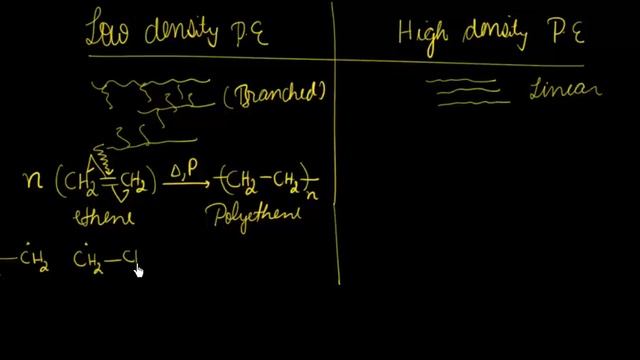 Low density P.E
High density P.E
(Branched)
Linear
n (CH₂=CH₂) Δ, P → (CH₂–CH₂)ₙ
ethene
Polyethene
–ĊH₂ ĊH₂–Cl